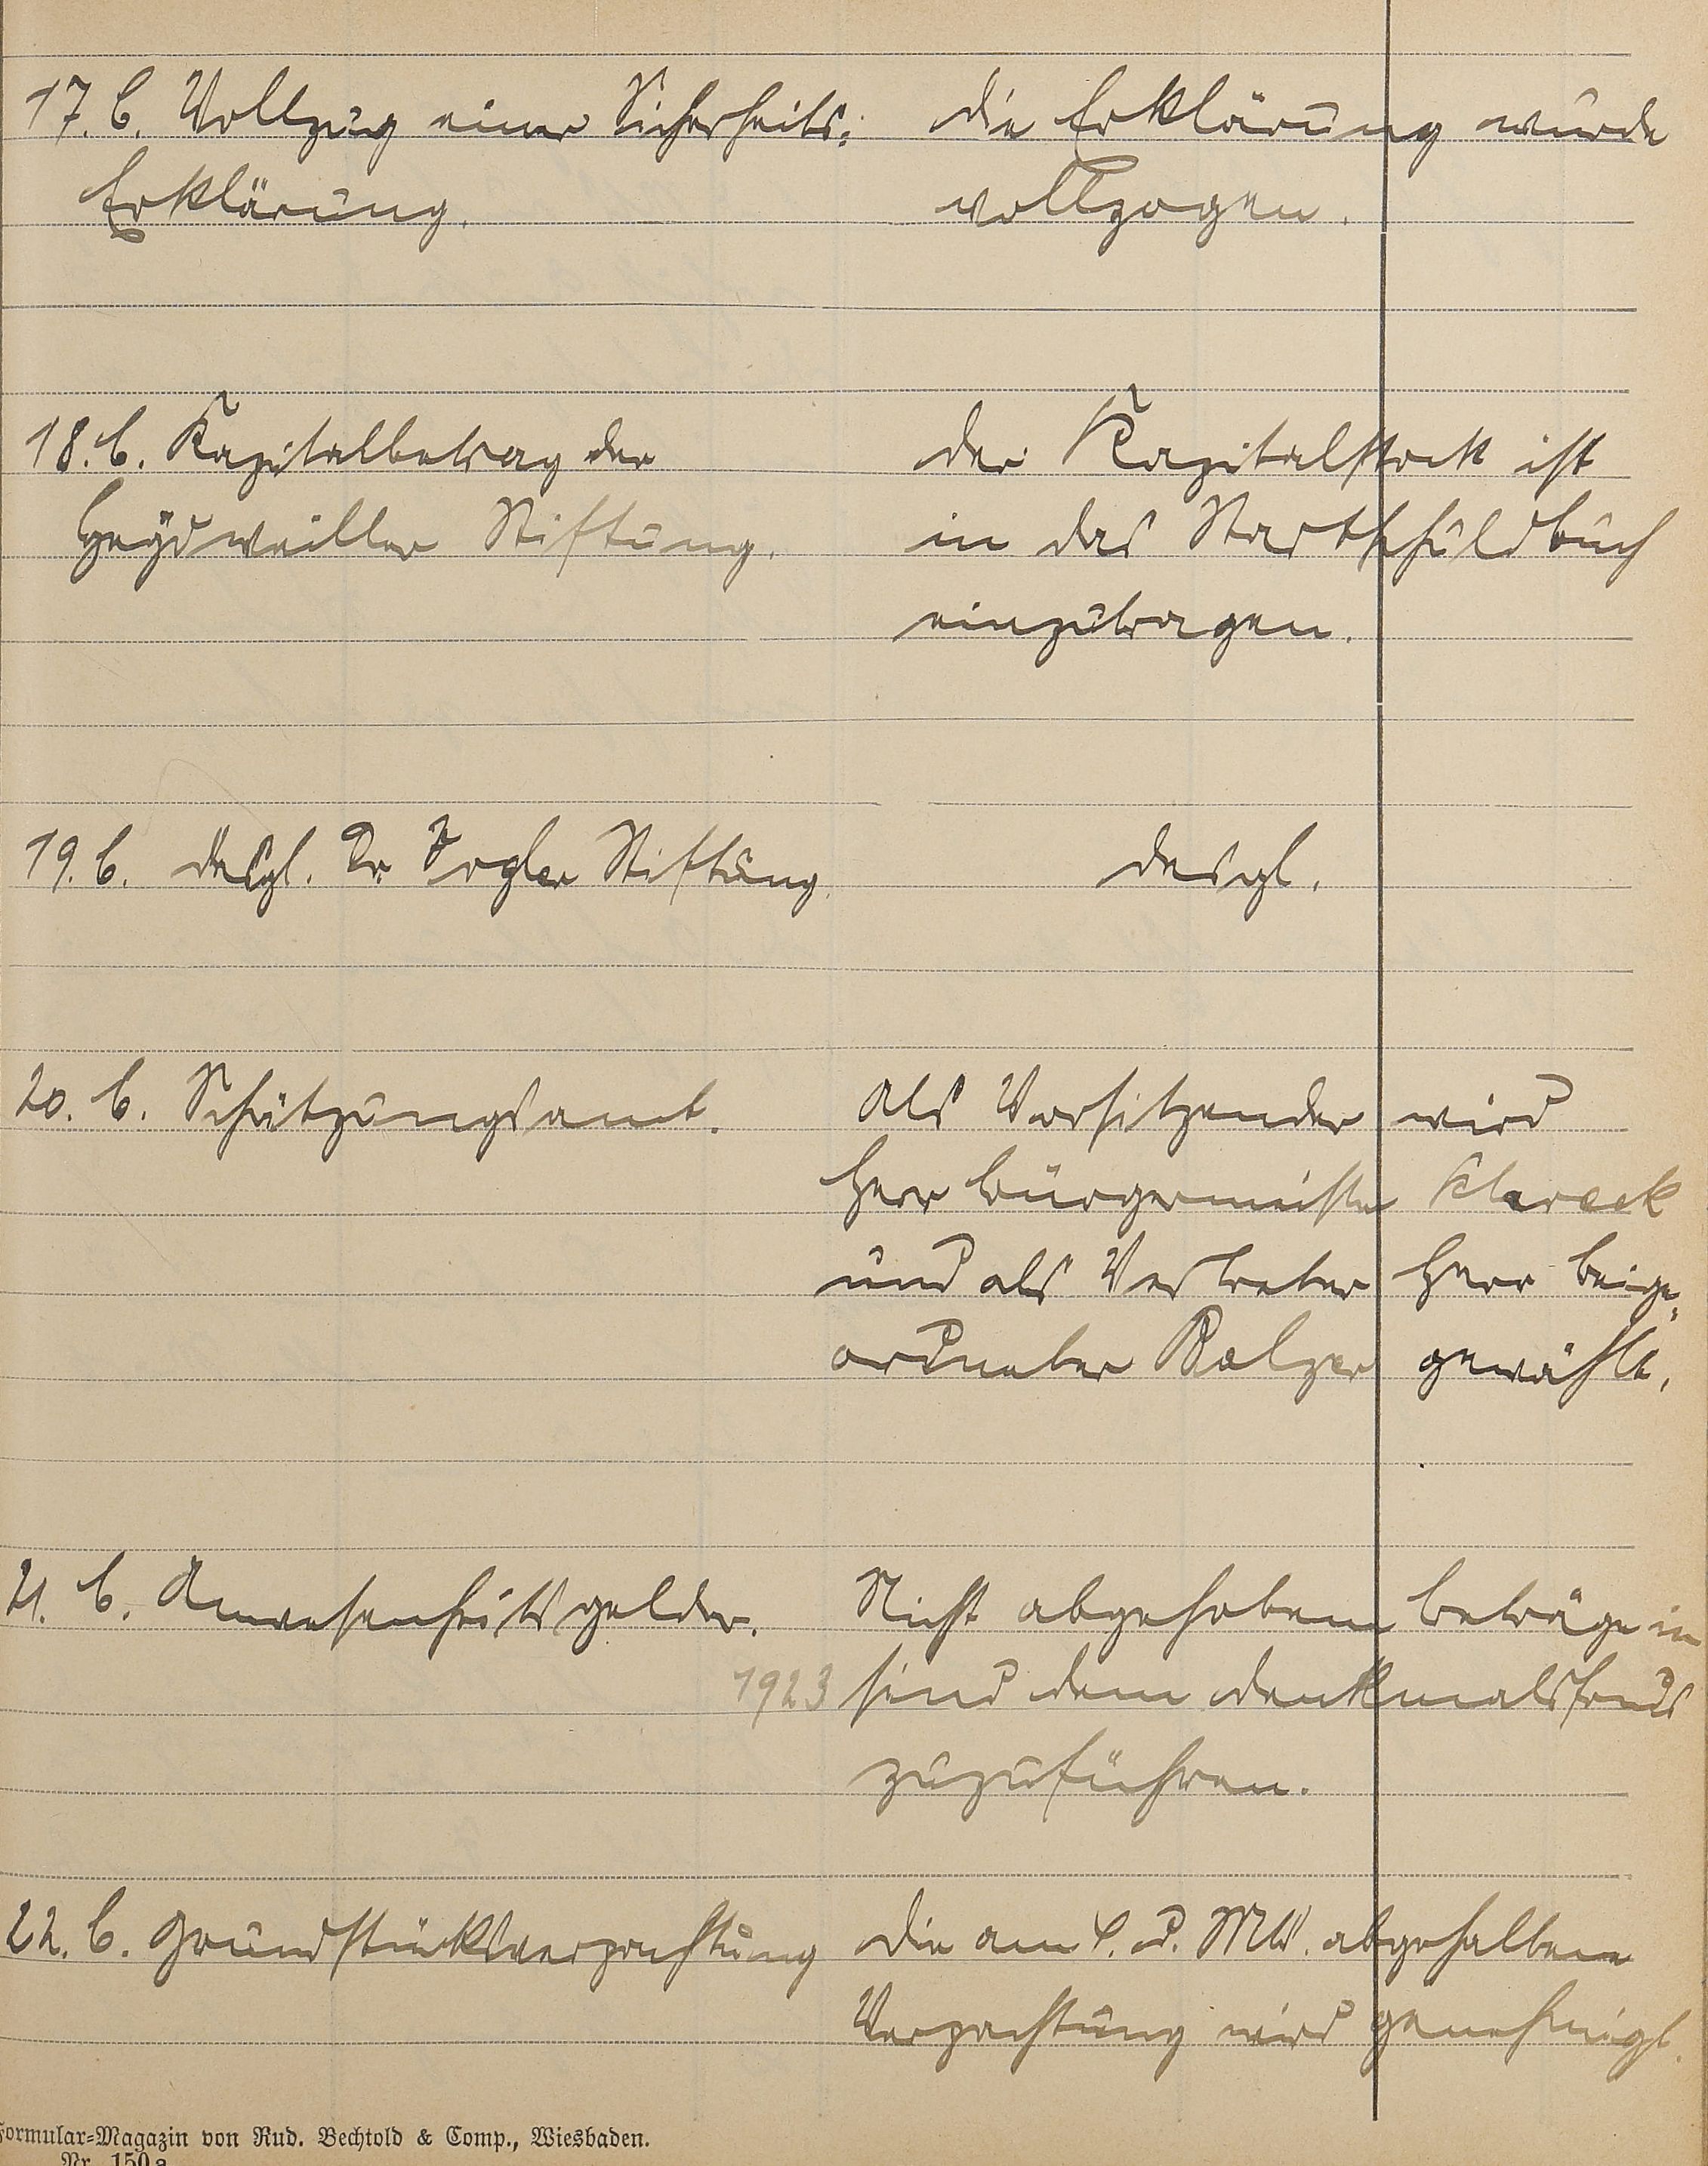 17. b. Vollzug einer Sicherheits-
Erklärung.
Die Erklärung wurde
vollzogen.
18. b. Kapitalbetrag der
Heydweiller Stiftung.
Der Kapitalstock ist
in das Staatsschuldbuch
einzutragen.
19. b. Desgl. Dr. Vogler Stiftung.
Desgl.
20. b. Schätzungsamt.
Als Vorsitzender wird
Herr Bürgermeister
und als Vertreter Herr Beige-
ordneter Balzer gewählt.
21. b. Anwesenheitsgelder.
Nicht abgehobene Beträge in
1923 sind dem Denkmalsfonds
zuzuführen.
22. b. Grundstücksverpachtung
Die am d. Mts. abgehaltene
Verpachtung wird genehmigt.
Formular-Magazin von Rud. Bechtold & Comp., Wiesbaden.
Nr. 150a